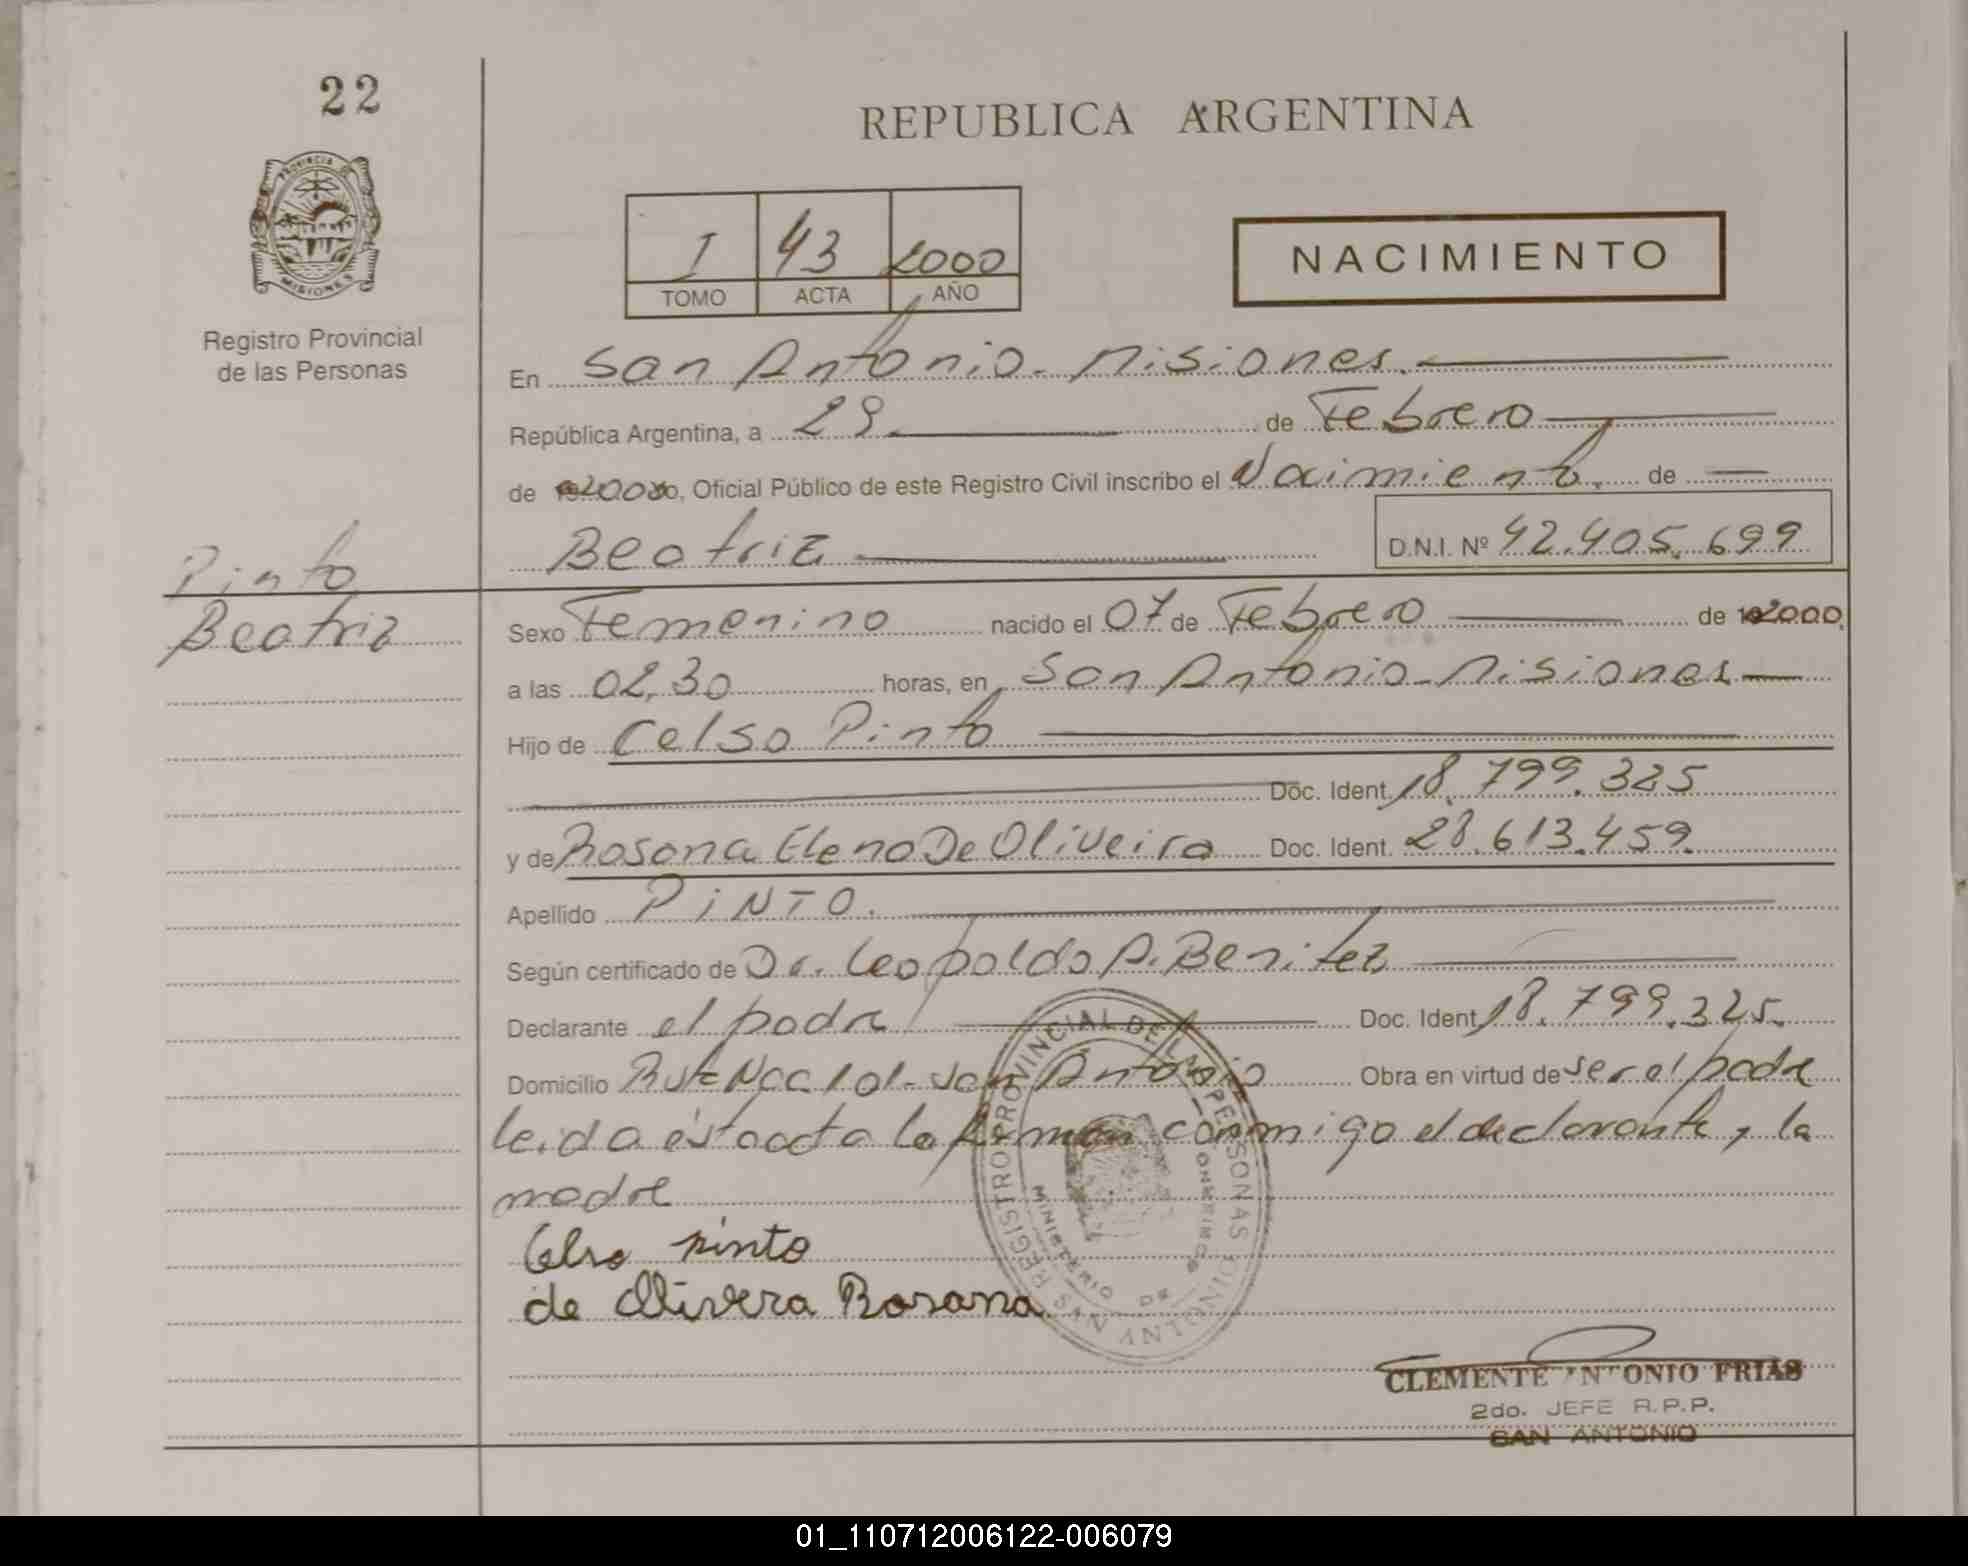 22
REPUBLICA ARGENTINA
PROVINCIA DE
MISIONES
Registro Provincial
de las Personas
I 43 2000
TOMO ACTA AÑO
NACIMIENTO
En San Antonio - Misiones.
República Argentina, a 29 de Febrero
de 2000, Oficial Público de este Registro Civil inscribo el Nacimiento. de
Beatriz D.N.I. Nº 42.405.699
Pinto
Beatriz
Sexo Femenino nacido el 07 de Febrero de 2000
a las 02,30 horas, en San Antonio - Misiones
Hijo de Celso Pinto
Doc. Ident. 18.799.325
y de Rosana Elena De Oliveira Doc. Ident. 28.613.459.
Apellido PINTO.
Según certificado de Dr. Leopoldo A. Benitez
Declarante el padre Doc. Ident. 18.799.325.
Domicilio San Antonio Obra en virtud de ser el padre
leida esta acta la firman conmigo el declarante y la
madre
Celso Pinto
de Olivera Rosana
REGISTRO PROVINCIAL DE LAS PERSONAS
MINISTERIO DE
CLEMENTE ANTONIO FRIAS
2do. JEFE R.P.P.
SAN ANTONIO
01_110712006122-006079